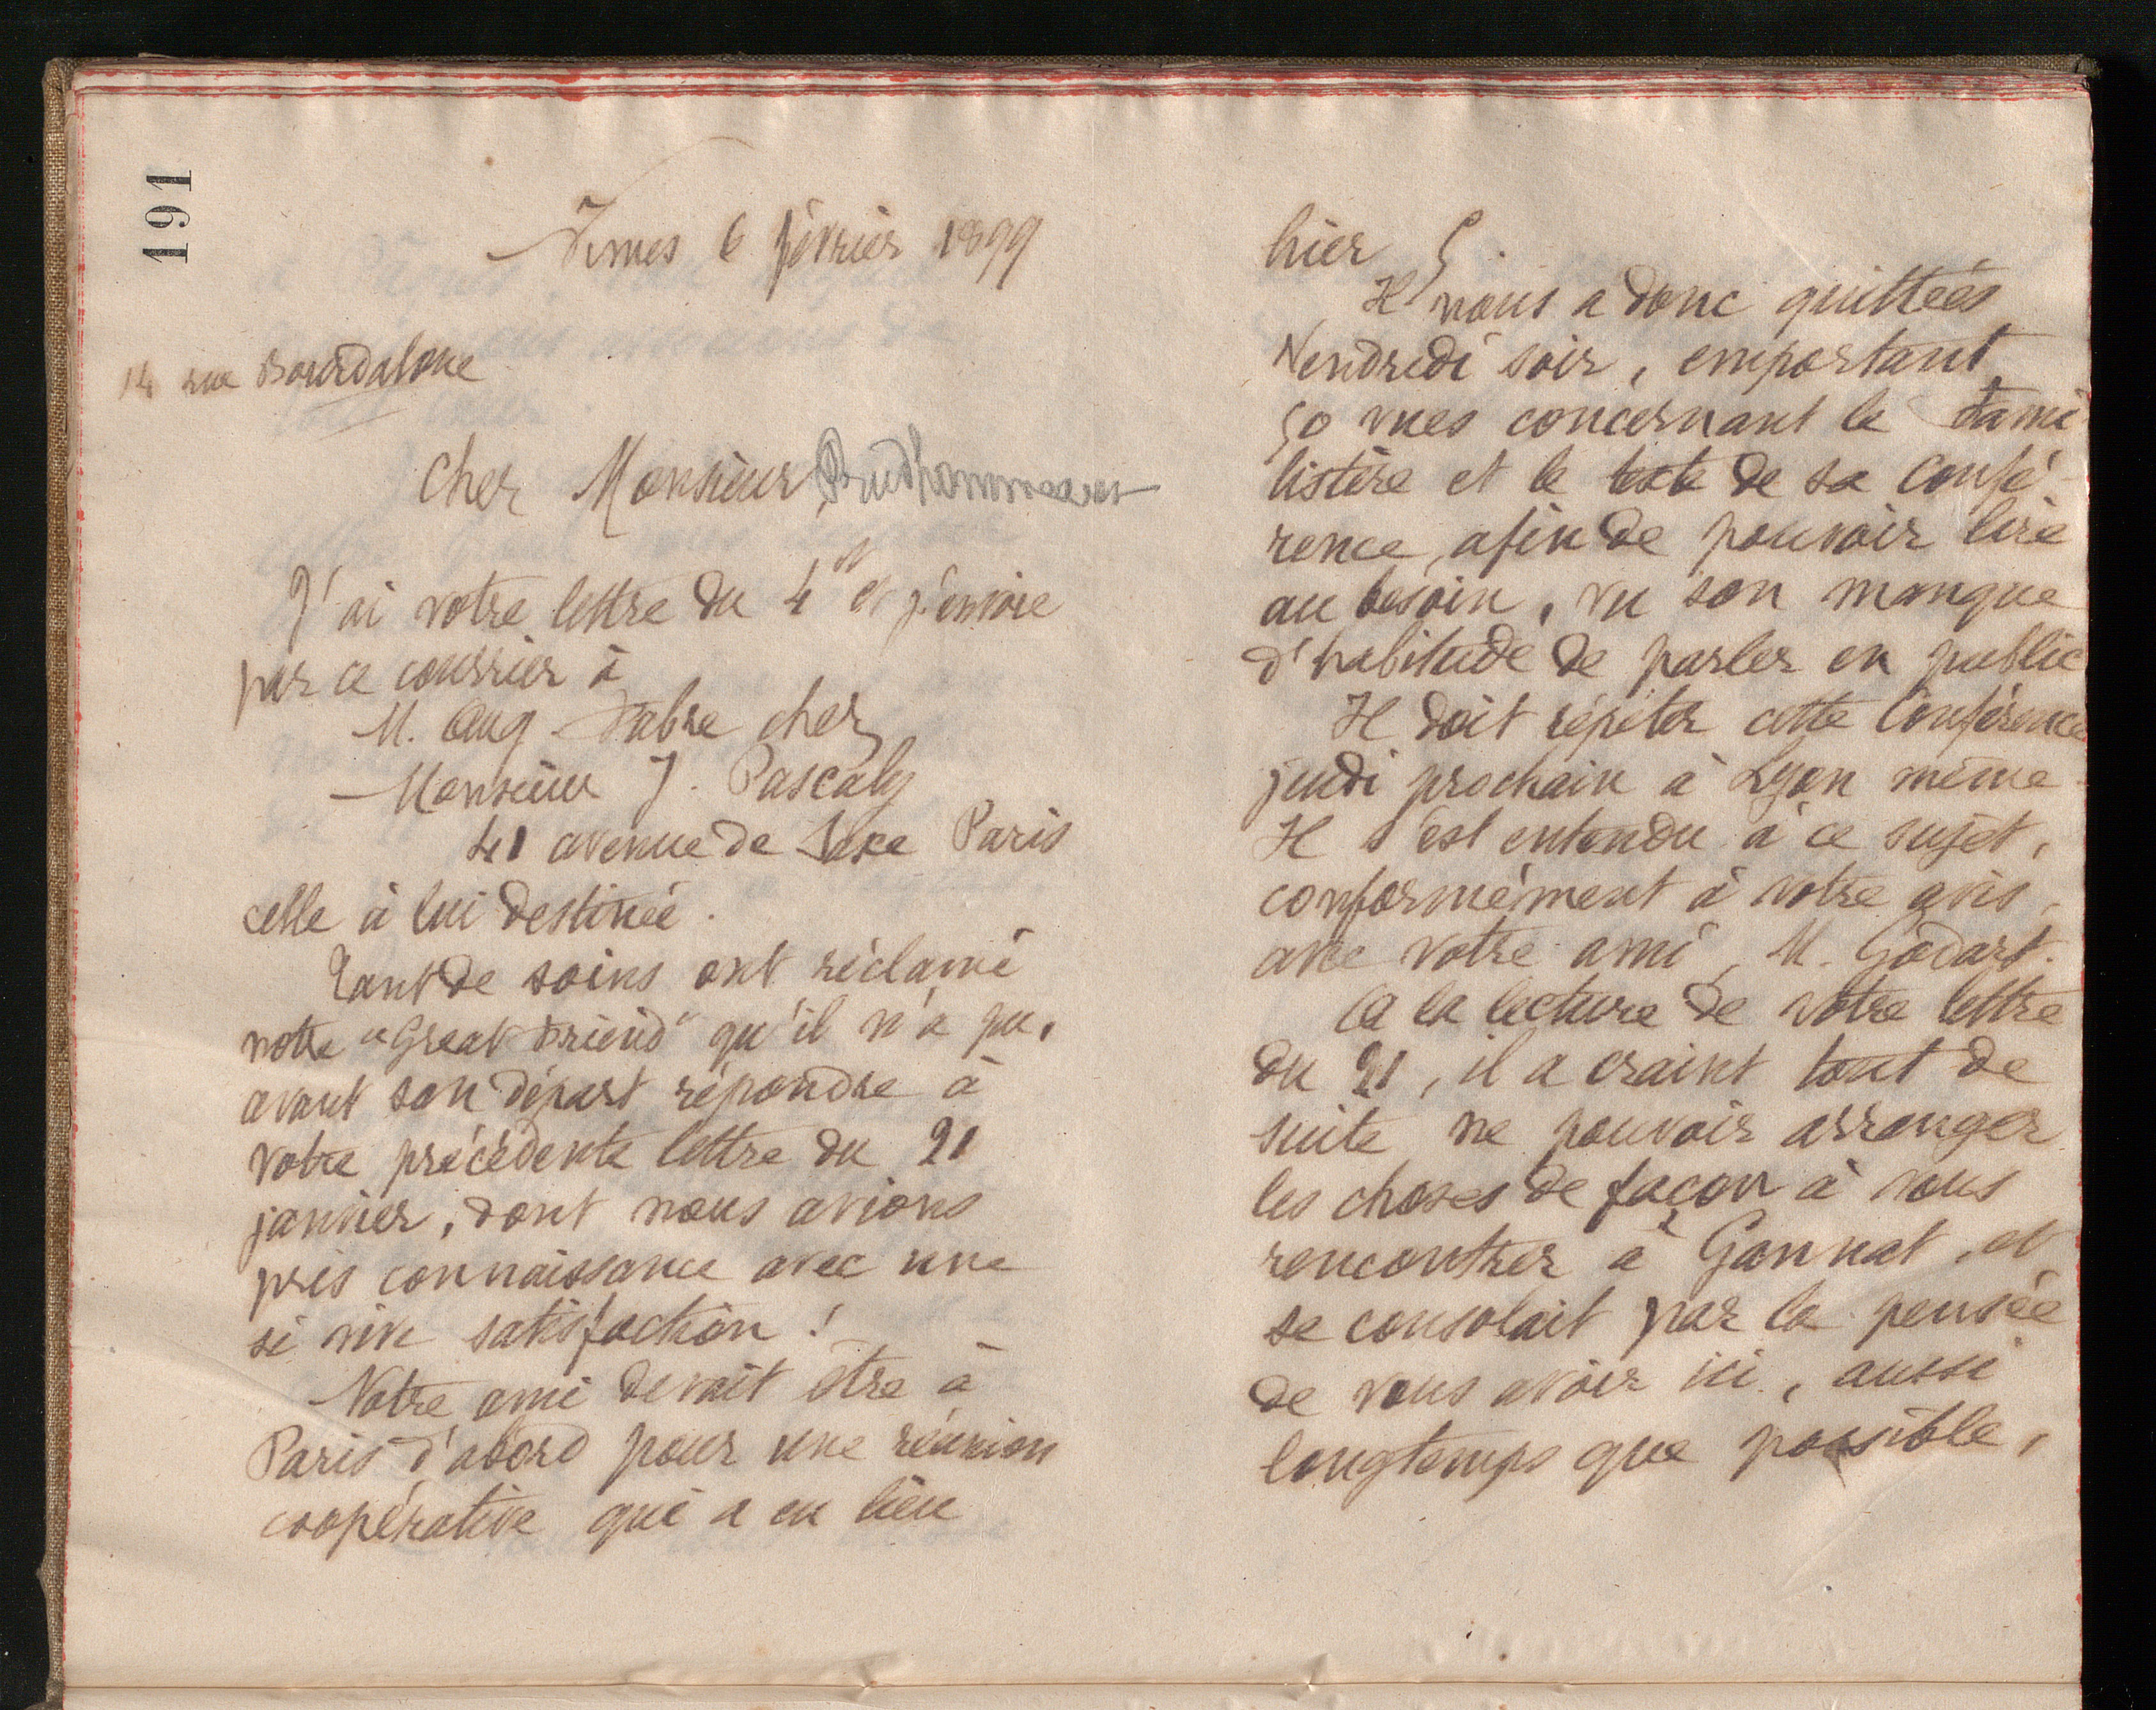 191
Nimes 6 février 1899
14 rue Bourdaloue
Cher Monsieur Prudhommeaux
J'ai votre lettre du 4 ct et j'envoie
par ce courrier à
M. Aug. Fabre chez
Monsieur J. Pascaly
41 avenue de Saxe Paris
celle à lui destinée.
Tant de soins ont réclamé
notre "Great Friend" qu'il n'a pu,
avant son départ répondre à
votre précédente lettre du 21
janvier, dont nous avions
pris connaissance avec une
si vive satisfaction !
Notre ami devait être à
Paris d'abord pour une réunion
coopérative qui a eu lieu
hier 5.
Il nous a donc quittées
Vendredi soir, emportant
50 vues concernant le Fami
listère et le texte de sa confé-
rence, afin de pouvoir lire
au besoin, vu son manque
d'habitude de parler en public
Il doit répéter cette Conférence
jeudi prochain à Lyon même.
Il s'est entendu à ce sujet,
conformément à votre avis,
avec votre ami, M. Godart.
A la lecture de votre lettre
du 21, il a craint tout de
suite ne pouvoir arranger
les choses de façon à vous
rencontrer à Gannat, et
se consolait par la pensée
de vous avoir ici, aussi
longtemps que possible,